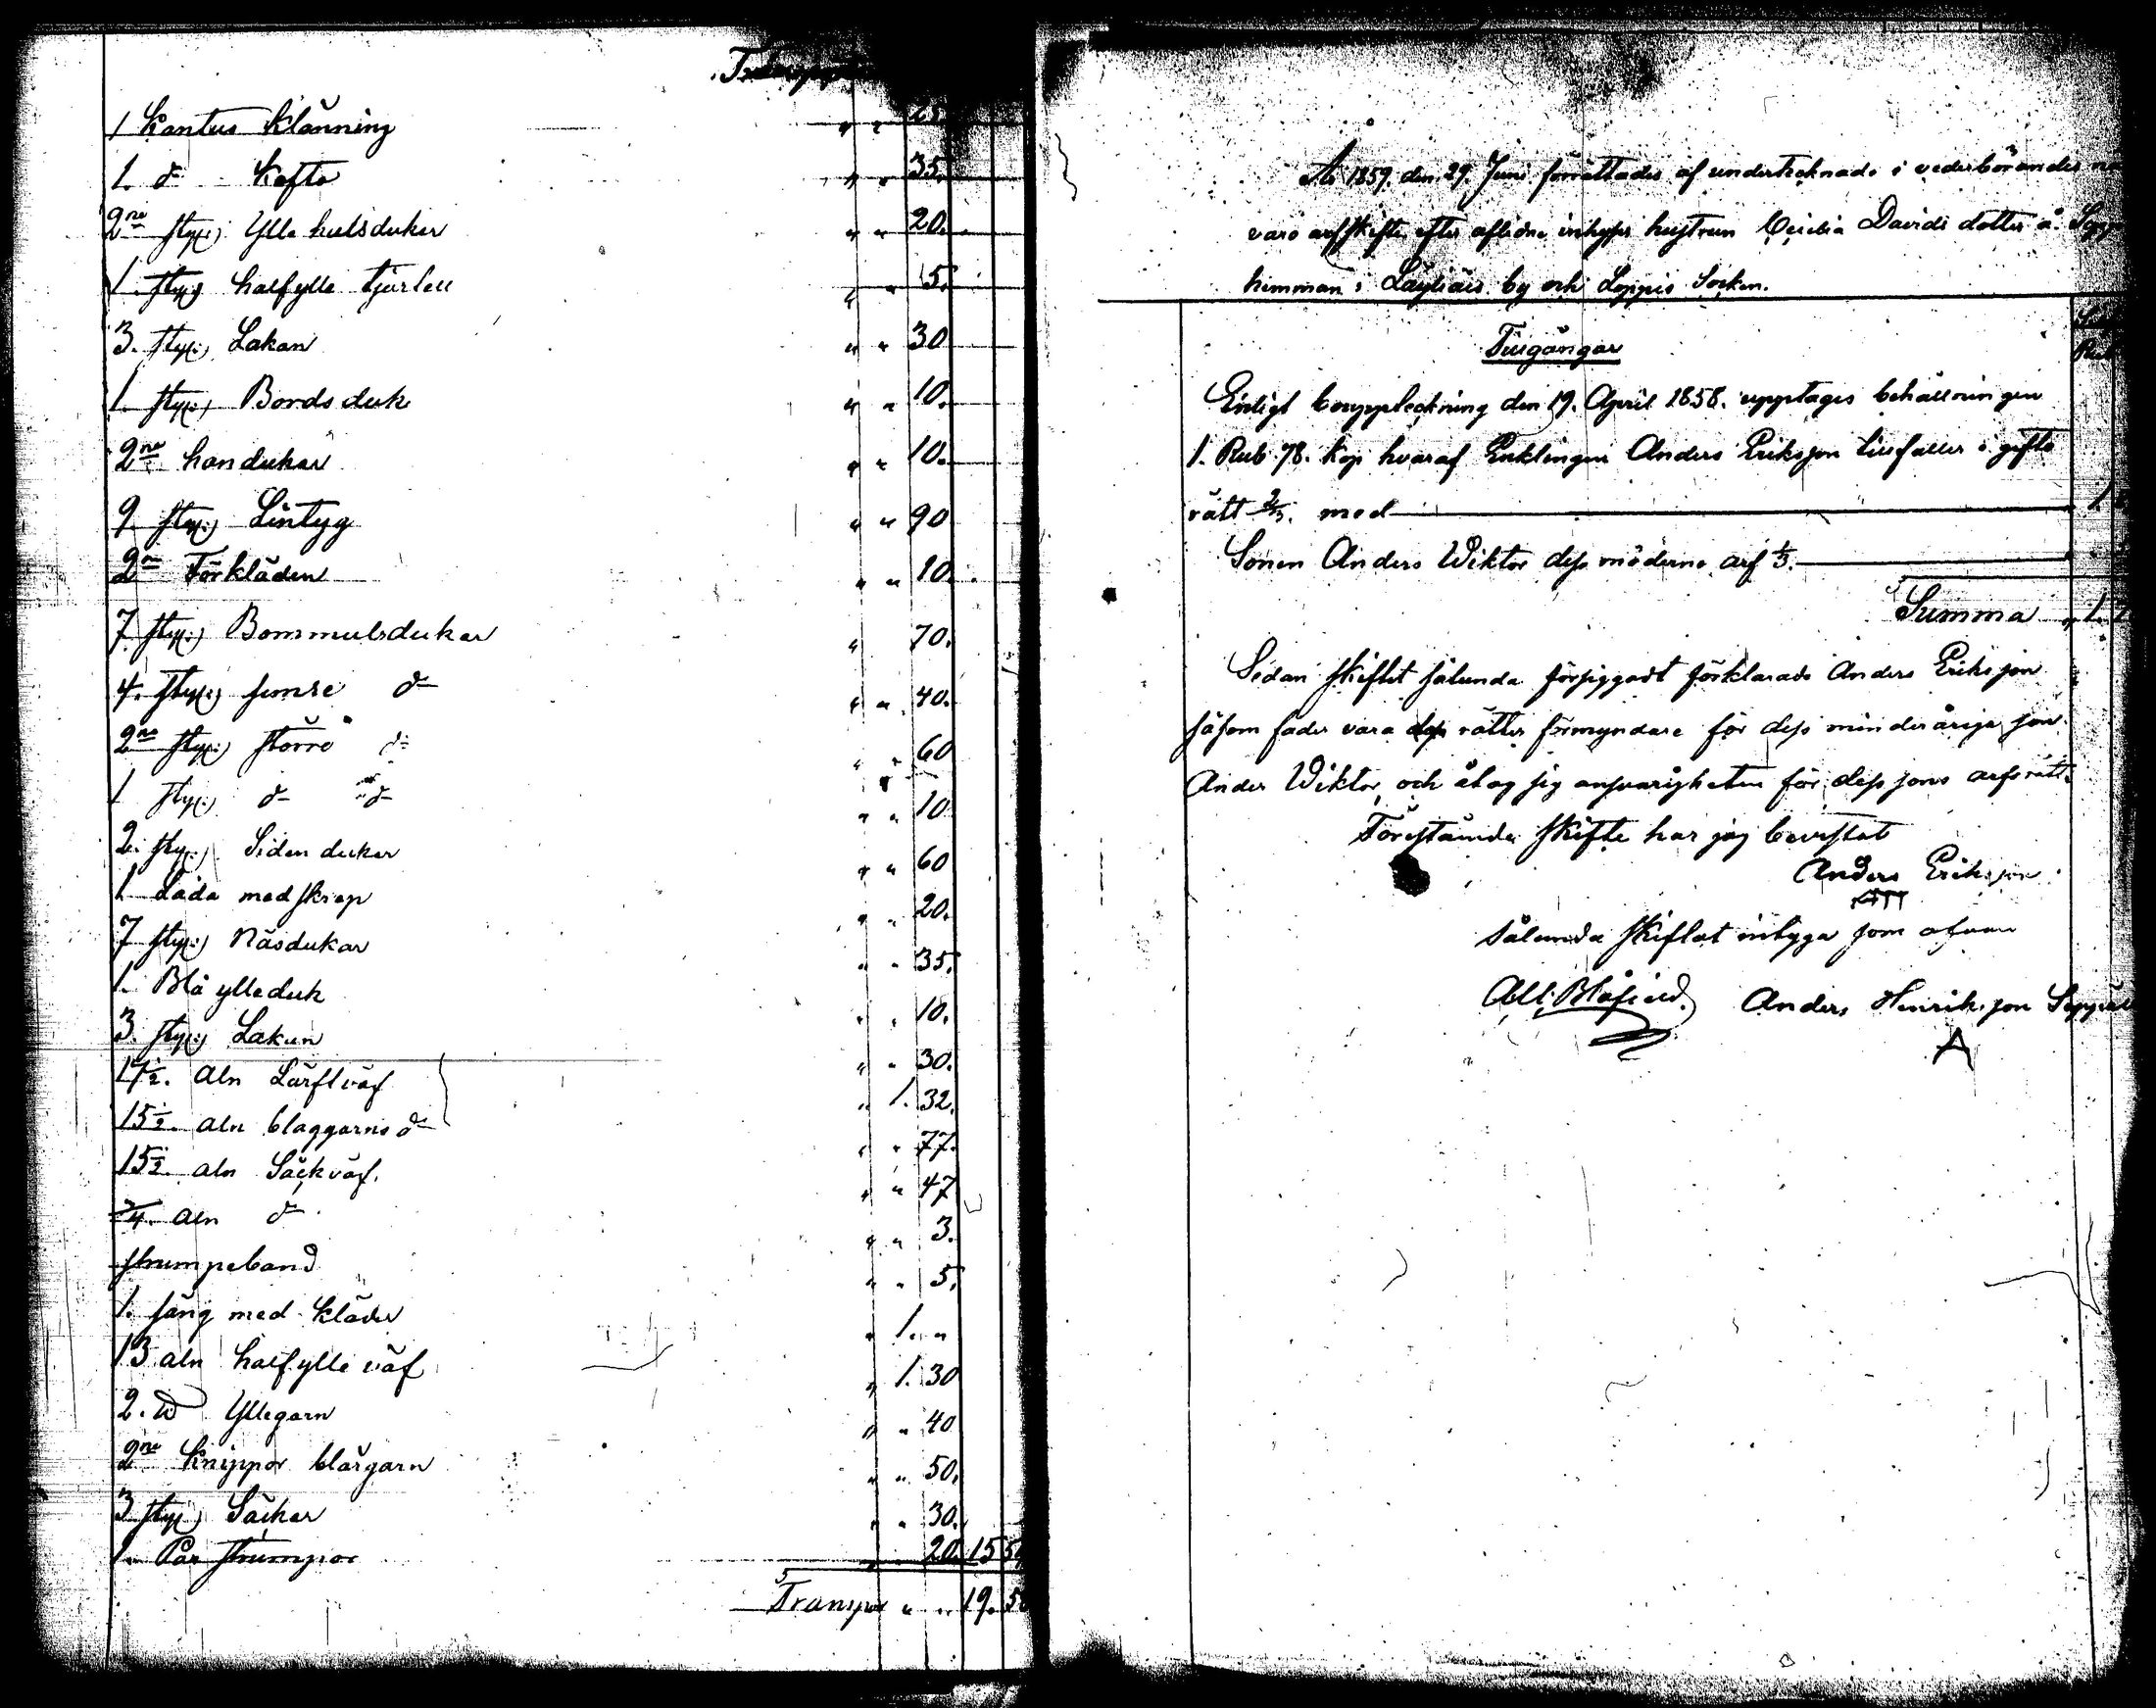 Transport
1 Kantus Klänning " " 25
1. d° Kofta " " 35.
2ne styc: Ylle hulsduker " " 20.
1. styc: halfylle tjortell " " 5.
3. styc: Lakan " " 30
1. styc: Bordsduk " " 10.
2ne handukar " " 10.
9. styc: Lintyg " " 90
2ne Förkläden " " 10.
7 styc: Bommulsdukar " 70.
4. styc: semre d° " " 40.
2ne styc: större d° " " 60
1 styc: d° " d° " " 10
2. styc: Siden duker " " 60
1 Låda med skrap " " 20.
7 styc: Näsdukar " " 35.
1. Blå ylleduk " " 10.
3. styc: Lakan " " 30.
17½. aln Lärftväf " 1. 32.
15½. aln blaggarns d° " " 77.
15½. aln Säckväf. " " 47
aln d° " " 3.
strumpeband " " 5.
1. säng med kläder " 1. "
13 aln halfylle väf " 1. 30
2. ℔ Yllegarn " " 40
2ne Knippor blårgarn " " 50.
3 styc: Säckar " " 30.
1. Par strumpor " " 20. 15 5
Transport " " 19. 5
År 1859. den 29. Juni förrättades af undertecknade i vederbörandes
varo arfskifte efter aflidne inhyses hustrun Cecilia Davids dotter å
hemman i Läyliäis by och Loppis Socken.
Tilgångar
Enligt bouppteckning den 19. April 1858. upptages behållningen
1. Rub 78. kop hvaraf Enklingen Anders Eriksson tillfaller i gifto
rätt ⅔. med 1.
Sonen Anders Wiktor dess möderne arf ⅓.
Summa " 1. 7
Sedan skiftet sålunda försiggådt förklarade Anders Eriksson
såsom fader vara dess rätter förmyndare för dess minderåriga son
Ander Wiktor och åtog sig ansvarigheten för dess sons arfsrätt.
Förestående skifte har jag bevistat
Anders Eriksson
sålunda skiftat intyga som ofvan
Anders Henriksson
A